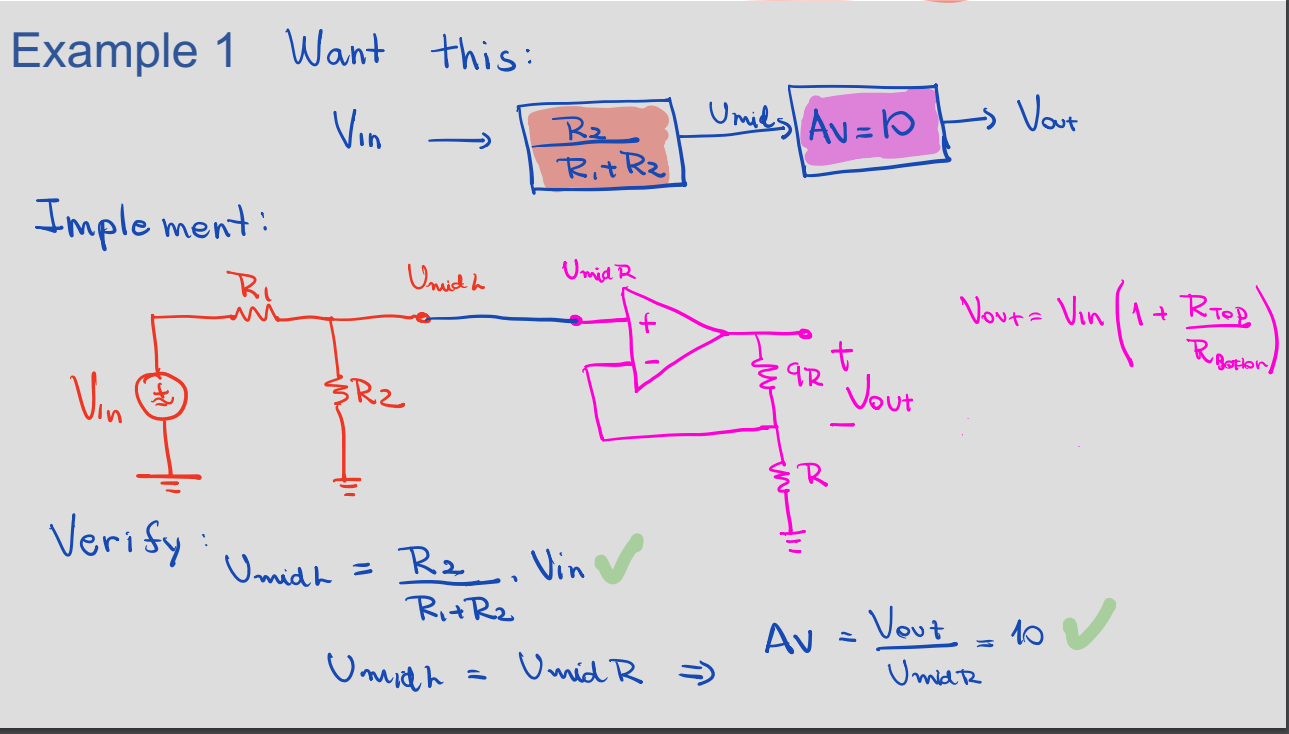 Example 1 Want this:
Vin → R2 / R1+R2 Umid → Av = 10 → Vout
Implement:
R1 UmidL UmidR
Vin ± R2 + - 9R + Vout - R
Vout = Vin (1 + RTop / RBottom)
Verify:
UmidL = R2 / R1+R2 . Vin ✓
UmidL = UmidR ⇒ Av = Vout / UmidR = 10 ✓